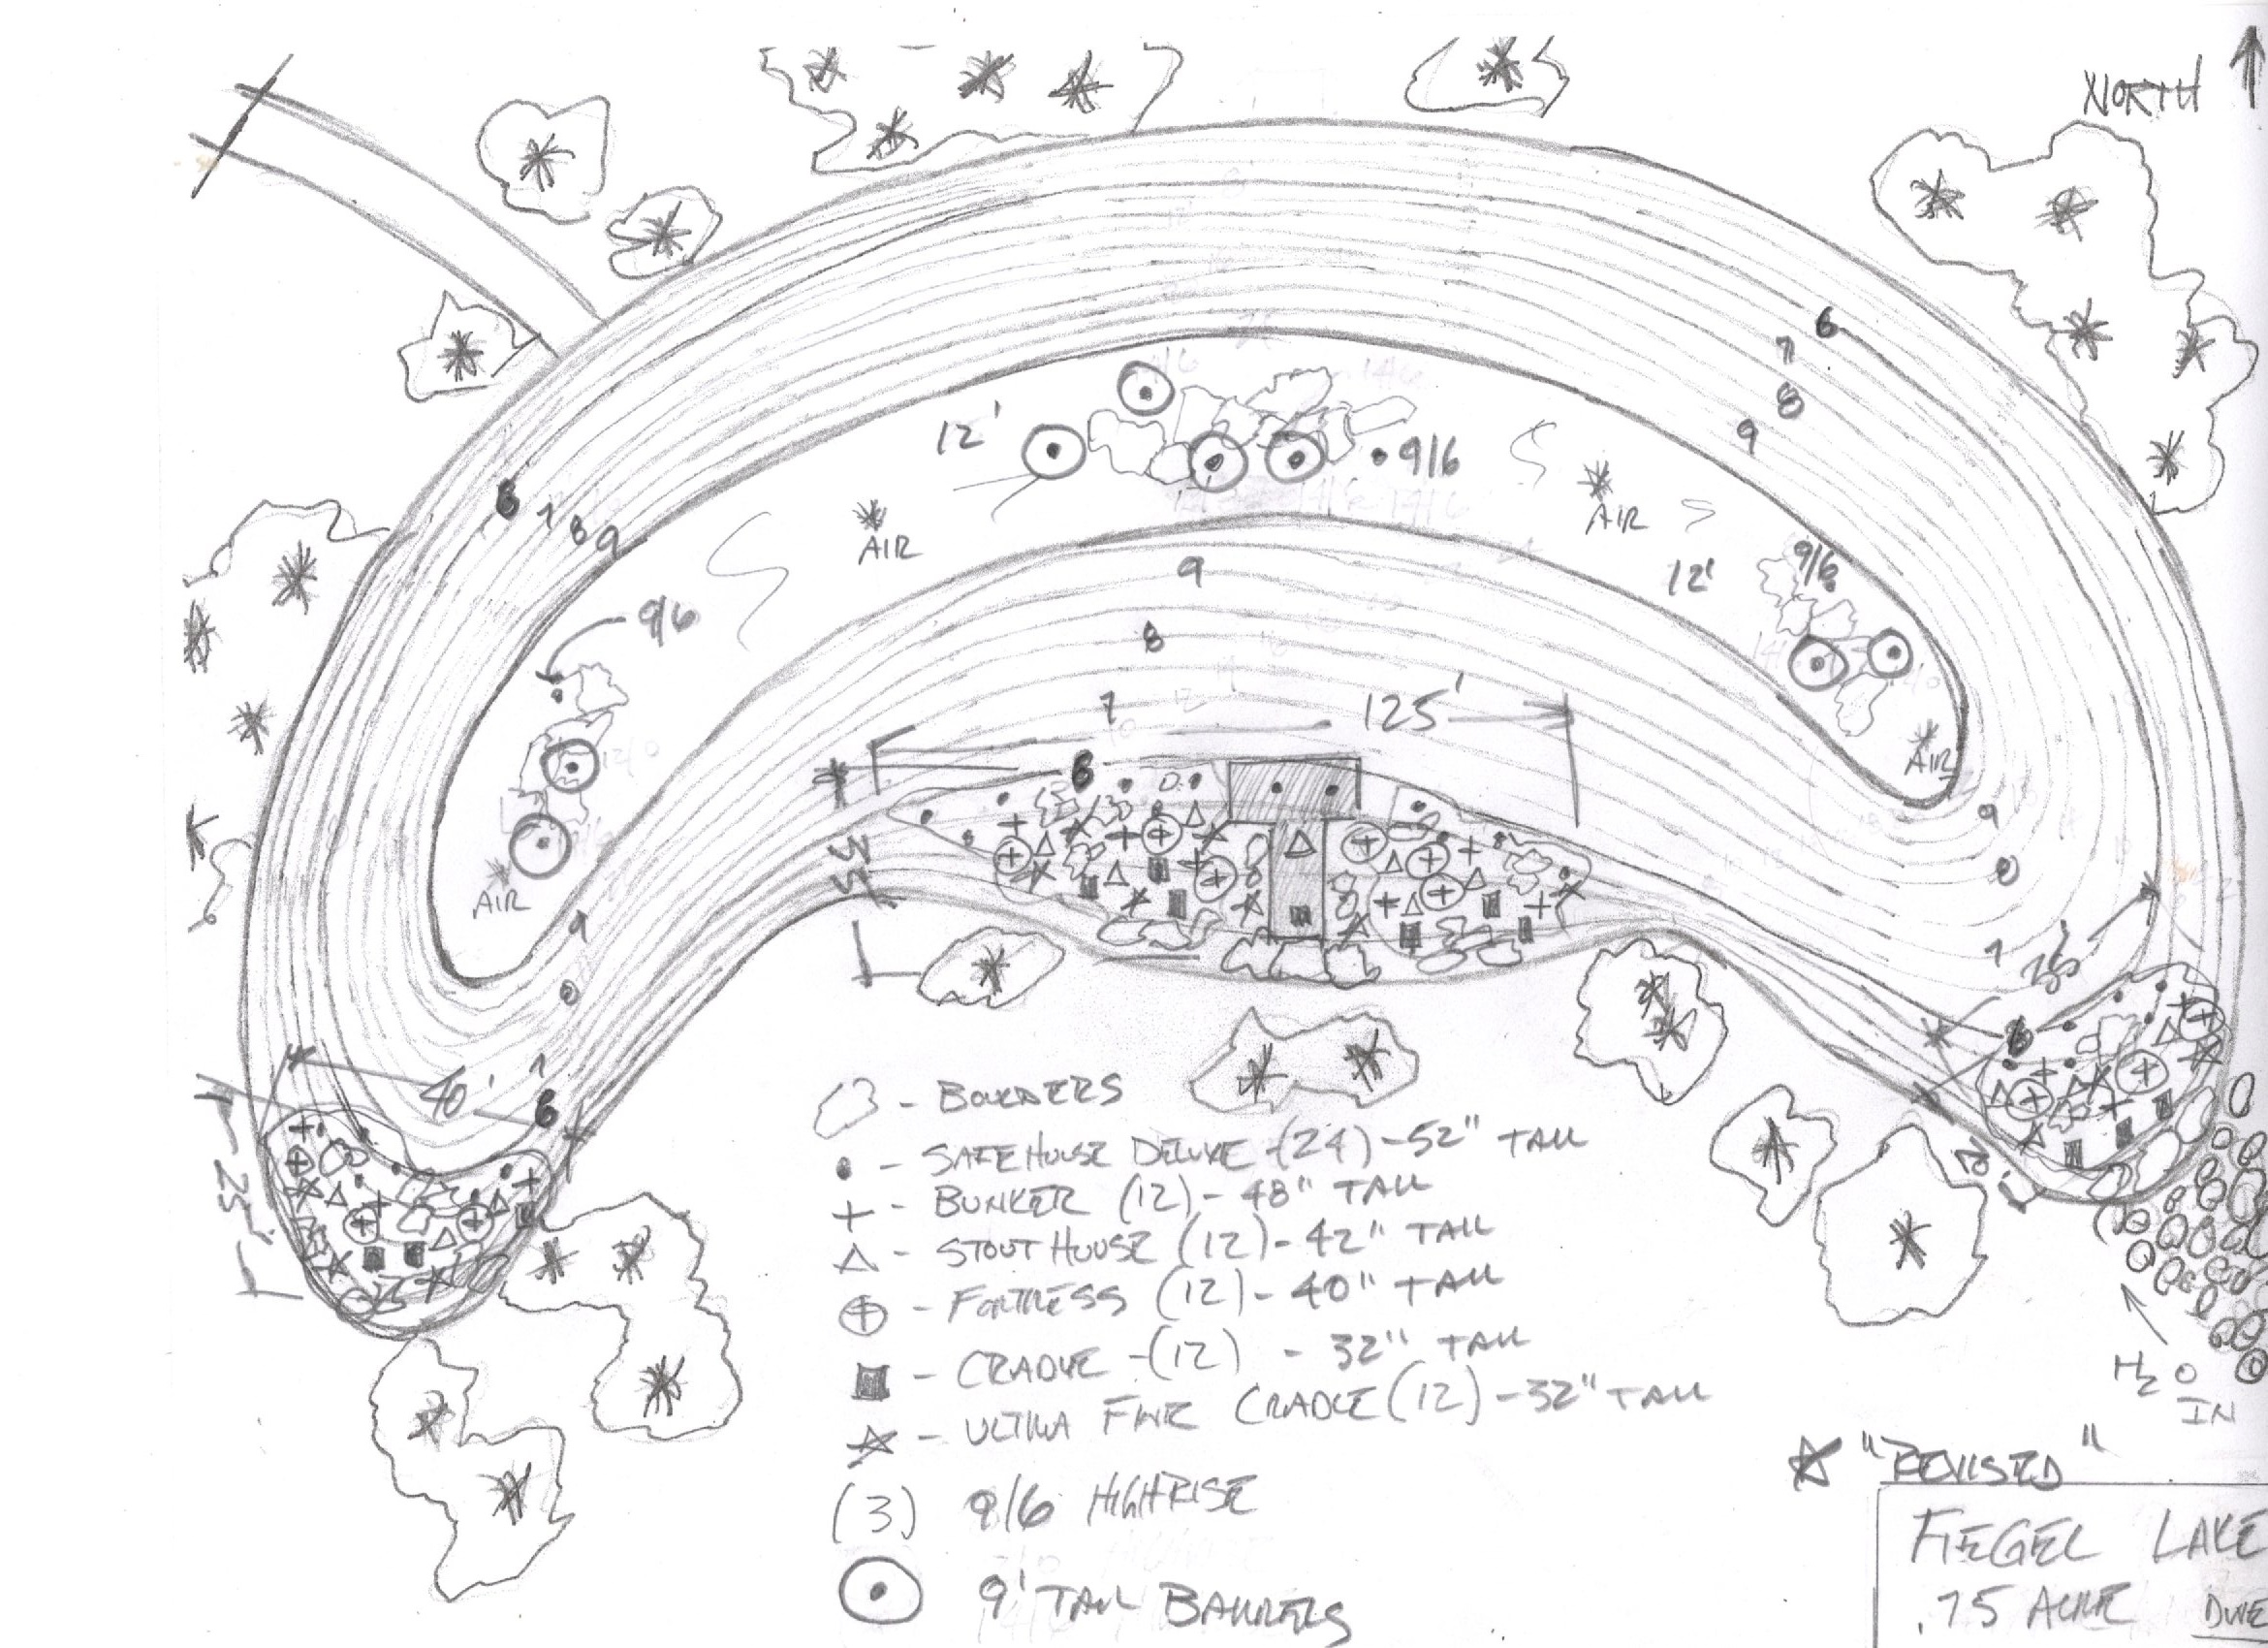 NORTH
6
7
8
9
12'
9/6
AIR
AIR
6 7 8 9
9
12'
9/6
9/6
8
7
125'
6
AIR
9
8
AIR
35'
9
8
7
7
25'
6
40'
6
25'
- BOULDERS
- SAFEHOUSE DELUXE (24) - 52" TALL
- BUNKER (12) - 48" TALL
- STOUT HOUSE (12) - 42" TALL
- FORTRESS (12) - 40" TALL
- CRADLE - (12) - 32" TALL
- ULTRA FINE CRADLE (12) - 32" TALL
(3) 9/6 HIGHRISE
9' TALL BARRELS
H2O
IN
"REVISED"
FIEGEL LAKE
.75 ACRE